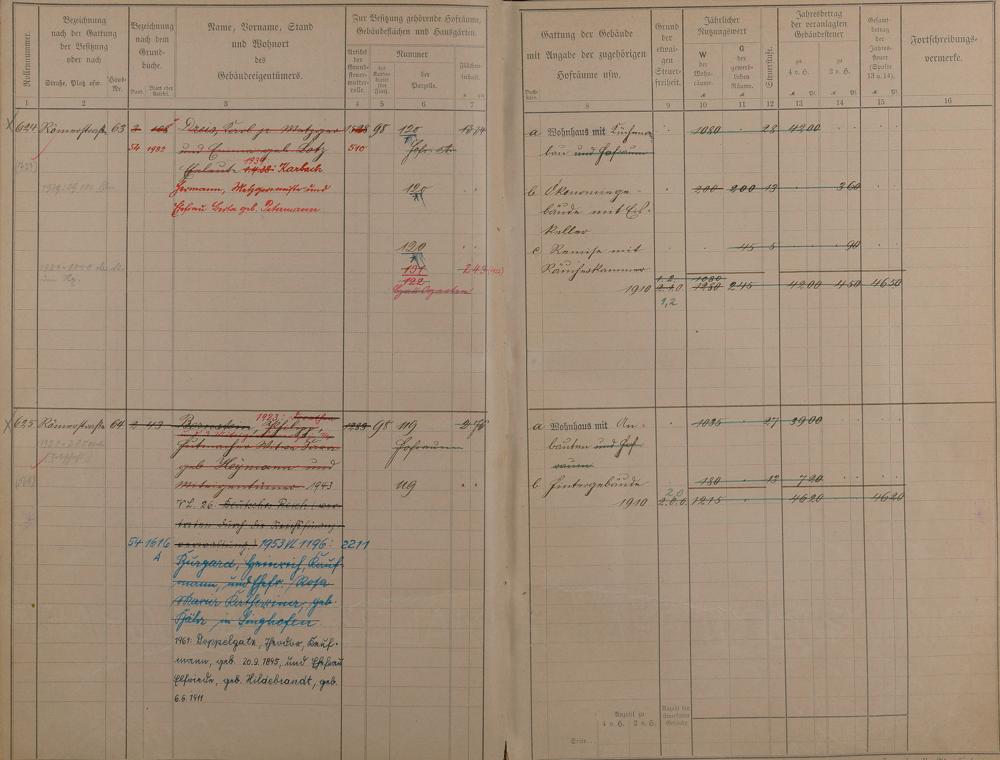 Rollennummer.
Bezeichnung
nach der Gattung
der Besitzung
oder nach
Straße, Platz usw.
Haus-
Nr.
Bezeichnung
nach dem
Grund-
buche.
Band.
Blatt oder
Artikel
Name, Vorname, Stand
und Wohnort
des
Gebäudeeigentümers.
Zur Besitzung gehörende Hofräume,
Gebäudeflächen und Hausgärten.
Artikel
der
Grund-
steuer-
mutter-
rolle.
Nummer
des
Karten-
blattes
der
Parzelle.
Flächen-
inhalt.
1 2 3 4 5 6 7
624 Römerstraße 63
2
54 1982
Dreis, Karl jr Metzger
und Emma geb. Lotz
Eheleute 1939: Karbach
Hermann, Metzgermeister und
Ehefrau Berta geb. Petermann
510
98 120
120
120
131
122
Hausgarten
243
625 Römerstraße 64
2 43
1923:
Hutmacher Witwe
geb Heymann und
Miteigentümer 1943
VL. 26. Deutsches Reich (ver-
treten durch die Reichsfinanz-
verwaltung.) 1953 VL 1196:
54 1616
A
2211
98 119
Hofraum
119
Burgard, Heinrich, Kauf-
mann, und Ehefr. Rosa
Maria Katharina, geb.
in Singhofen
1961: Doppelgatz, Theodor, Kauf-
mann, geb. 20.9.1895, und Ehefrau
Elfriede, geb. Hildebrandt, geb.
6.6.1911
Gattung der Gebäude
mit Angabe der zugehörigen
Hofräume usw.
Grund
der
etwai-
gen
Steuer-
freiheit.
Jährlicher
Nutzungswert
W
der
Wohn-
räume.
G
der
gewerb-
lichen
Räume.
Steuerstufe.
Jahresbetrag
der veranlagten
Gebäudesteuer
zu
4 v. H.
zu
2 v. H.
Gesamt-
betrag
der
Jahres-
steuer
(Spalte
13 u. 14).
Fortschreibungs-
vermerke.
8 9 10 11 12 13 14 15 16
a Wohnhaus mit Küchen-
bau und Hofraum
1080 28 4200
b Ökonomiege-
bäude mit Eis-
keller
200 200 13 360
c Remise mit
Räucherkammer
45 5 90
1910 1280 245 4200 450 4650
1,2
a Wohnhaus mit An-
bauten und Hof-
raum
1035 27 3900
b Hintergebäude
180 12 720
1910 2.0.0. 1215 4620 4620
Anzahl zu
4 v. H. 2 v. H.
Anzahl der
steuerfreien
Gebäude
Seite